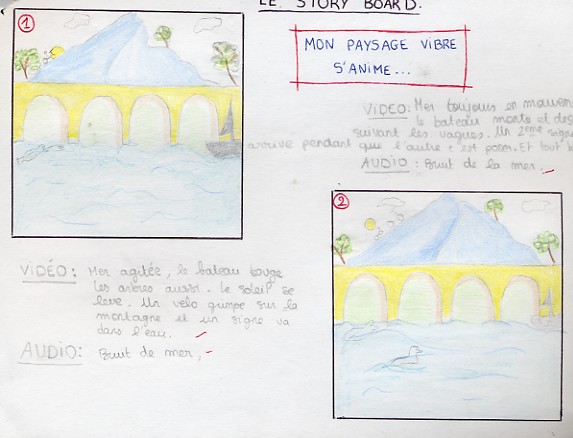 LE STORY BOARD.
MON PAYSAGE VIBRE
S'ANIME...
1
VIDÉO: Mer agitée, le bateau bouge
les arbres aussi. Le soleil se
lève. Un velo grimpe sur la
montagne et un signe va
dans l'eau.
AUDIO: Bruit de mer,
VIDEO: Mer toujours en mouvem
le bateau monte et des
suivant les vagues. Un 2eme signe
arrive pendant que l'autre
Et tout b
AUDIO: Bruit de la mer.
2